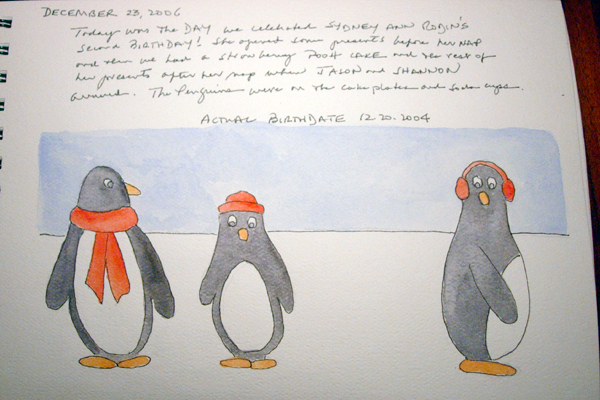 DECEMBER 28, 2006
Today was the DAY we celebrated SYDNEY ANN ROBIN'S
second BIRTHDAY! She opened some presents before her NAP
and then we had a strawberry POOH CAKE and the rest of
her presents after her nap when JASON and SHANNON
arrived. The Penguins were on the cake plates and soda cups.
ACTUAL BIRTHDATE 12.20.2004